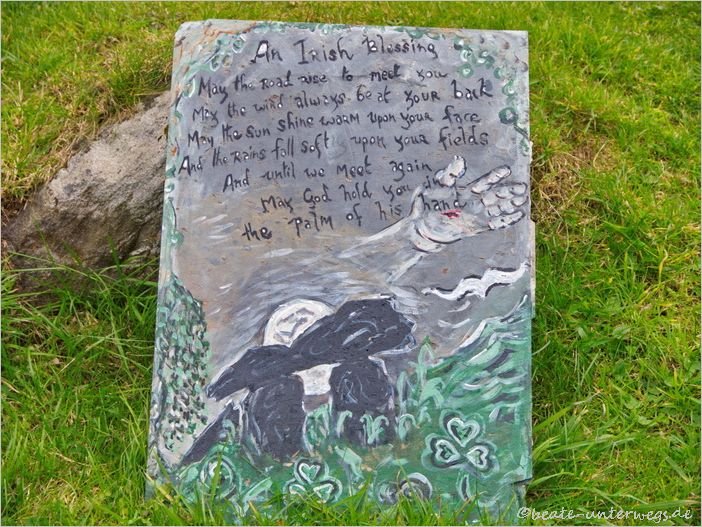 An Irish Blessing
May the road rise to meet you
May the wind always be at your back
May the sun shine warm upon your face
And the rains fall soft upon your fields
And until we meet again
May God hold you in
the palm of his hand
©beate-unterwegs.de